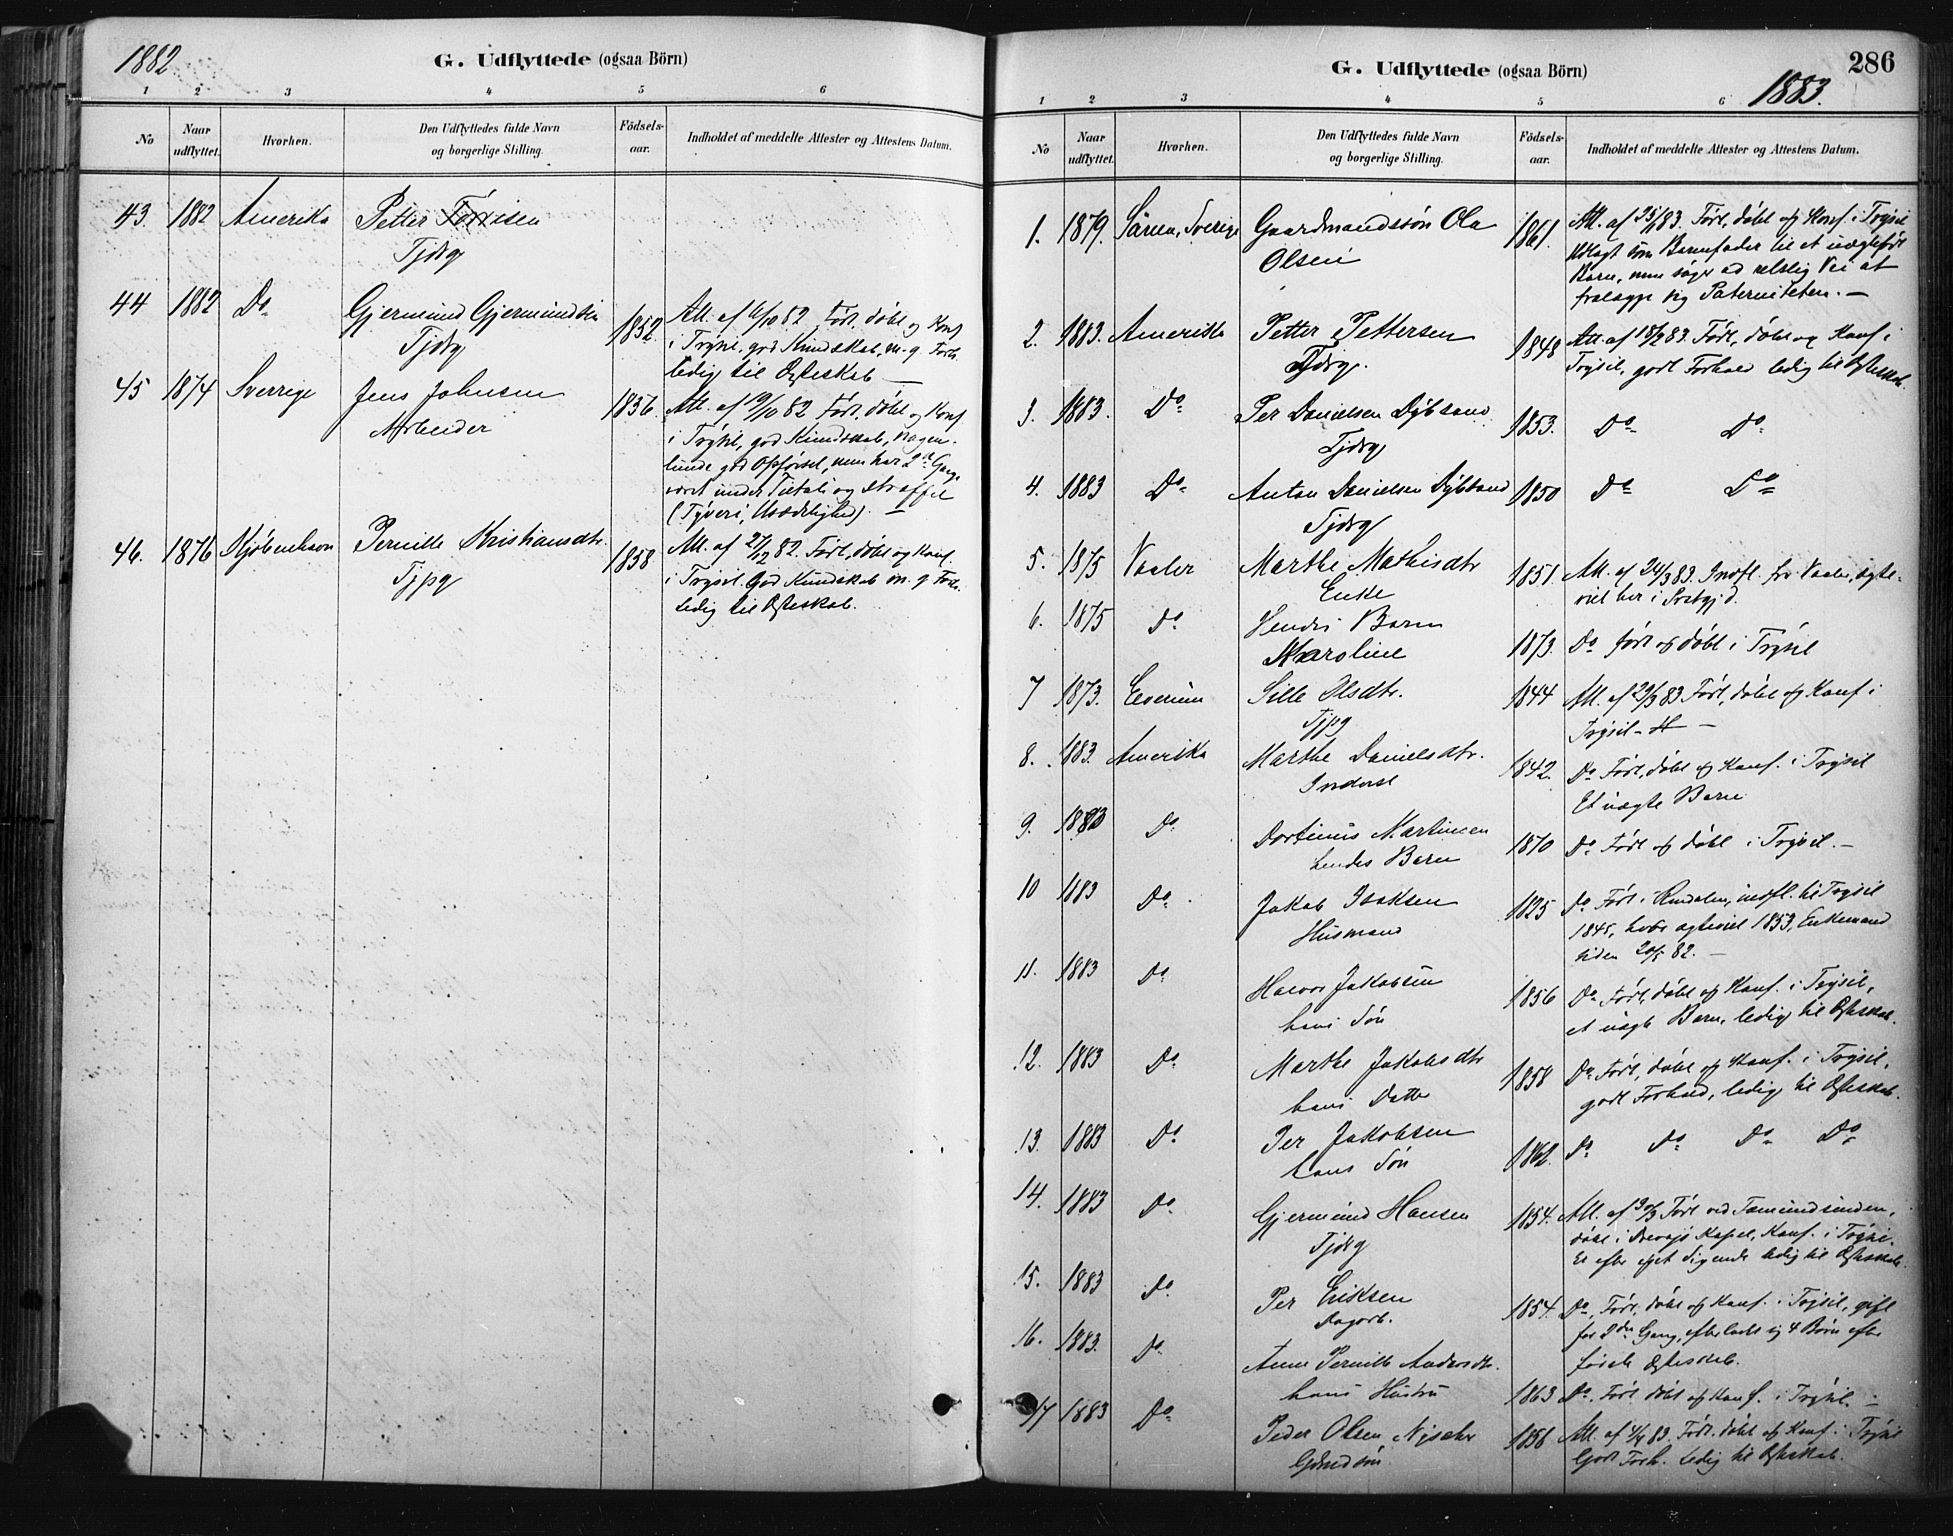 1882
G. Udflyttede (ogsaa Börn)
1 2 3 4 5 6
No
Naar udflyttet.
Hvorhen.
Den Udflyttedes fulde Navn og borgerlige Stilling.
Födsels-aar.
Indholdet af meddelte Attester og Attestens Datum.
43. 1882 Amerika Petter
Tjdrg
44 1882 Do Gjermund Gjermundsen 1852. Att. af 6/10 82 Født, døbt og Konf.
Tjdrg i Trysil, god Kundskab, m. g. Forh.
ledig til Ægteskab —
45 1874 Sverrige Jens Johnsen 1856. Att. af 19/10 82 Født, døbt og Konf.
Arbeider i Trysil, god Kundskab, nogen-
lunde god Opførsel, men har 2de Gange
været under Tiltale og straffet
(Tyveri, Usædelighed). —
46. 1876 Kjøbenhavn Pernille Kristiansdtr. 1858 Att. af 27/12 82. Født, døbt og Konf.
Tjpg i Trysil. God Kundskab m. g. Forh.
ledig til Ægteskab.
G. Udflyttede (ogsaa Börn)
286
1883.
1 2 3 4 5 6
No
Naar udflyttet.
Hvorhen.
Den Udflyttedes fulde Navn og borgerlige Stilling.
Födsels-aar.
Indholdet af meddelte Attester og Attestens Datum.
1. 1879. Särna, Sverige Gaardmandssøn Ola 1861. Født, døbt og Konf. i Trysil
Olsen Udlagt som Barnefader til et uægtefødt
Barn, men søger ad retslig Vei at
fralægge sig Paterniteten. —
2. 1883. Amerika Petter Pettersen 1848 Att. af 18/2 83. Født, døbt og Konf. i
Tjdrg. Trysil, godt Forhold ledig til Ægteskab.
3. 1883. Do Per Danielsen Dybsand 1853. Do Do
Tjdrg
4. 1883 Do Anton Danielsen Dybsand 1850 Do Do
Tjdrg
5. 1875 Vaaler Marthe Mathisdtr 1851. Att. af 24/3 83. Indfl. fra Vaaler, ægte-
Enke viet her i Præstgjd.
6. 1875 Do Hendes Barn
Karoline 1873. Do født og døbt i Trysil
7 1873. Elverum Sille Olsdtr. 1844 Att. af 29/3 83 Født, døbt og Konf. i
Tjpg Trysil —
8. 1883. Amerika Marthe Danielsdtr. 1842. Do Født, døbt og Konf. i Trysil
Inderst Et uægte Barn
9. 1883 Do Martinsen 1870 Do Født og døbt i Trysil. —
hendes Barn
10 1883 Do Jakob Isaksen 1825 Do Født i Rendalen, indfl. til Trysil
Husmand 1845, ægteviet 1853, Enkemand
siden 20/5 82. —
11. 1883 Do Halvor Jakobsen 1856 Do Født, døbt og Konf. i Trysil,
hans Søn et uægte Barn, ledig til Ægteskab.
12. 1883 Do Marthe Jakobsdtr 1858 Do Født, døbt og Konf. i Trysil,
hans Datter godt Forhold, ledig til Ægteskab.
13. 1883 Do Per Jakobsen 1862. Do Do Do Do
hans Søn
14. 1883 Do Gjermund Hansen 1854. Att. af 30/3 Født ved Fæmundsenden,
Tjdrg døbt i Drevsjø Kapel, Konf. i Trysil.
Er efter eget Sigende ledig til Ægteskab.
15. 1883 Do Per Eriksen 1854. Do. Født, døbt og Konf. i Trysil, gift
Dagarb. for 2den Gang, efterladt sig 4 Børn efter
første Ægteskab.
16. 1883. Do Anne Pernille Andersdtr.
hans Hustru 1863 Do. Født døbt og Konf. i Trysil. —
17 1883 Do Peder Olsen 1856 Att. af 4/4 83. Født, døbt og Konf. i Trysil
Gdmdsøn Godt Forh. Ledig til Ægteskab.